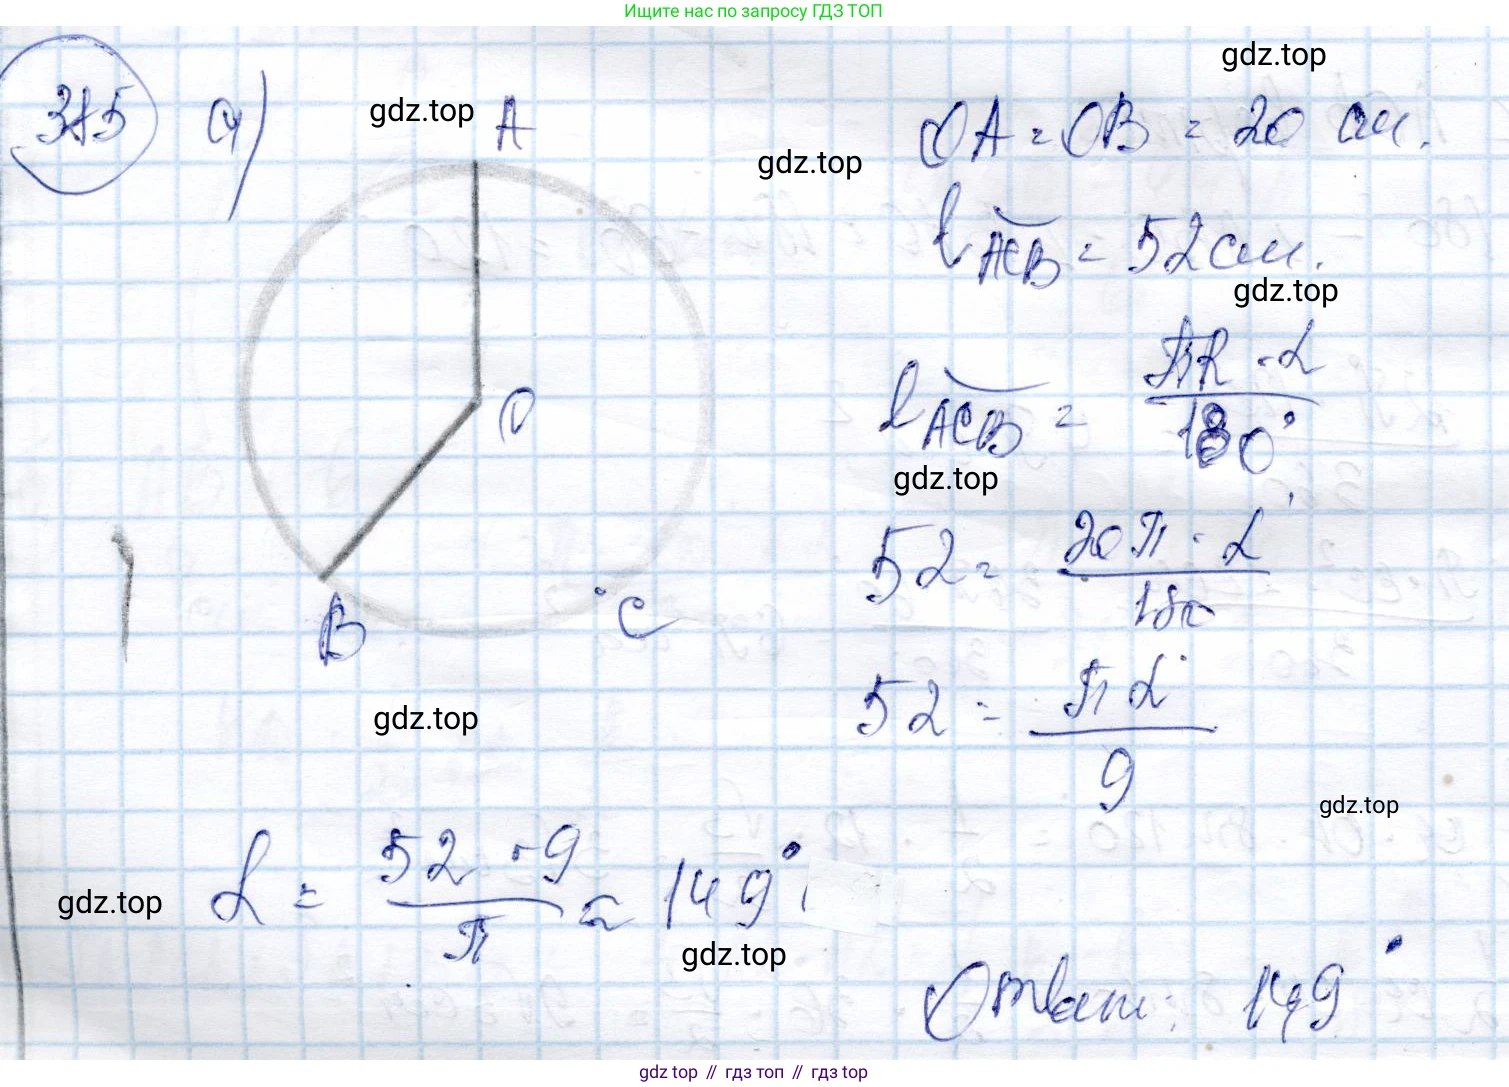 Ищите нас по запросу ГДЗ ТОП
315 а)
gdz.top
gdz.top
gdz.top
A
O
B
C
OA = OB = 20 см.
l ACB = 52 см.
gdz.top
l ACB = ПR · α / 180°
gdz.top
52 = 20П · α / 180
52 = Пα / 9
gdz.top
gdz.top
gdz.top
α = 52 · 9 / П ≈ 149°.
gdz.top
Ответ: 149°
gdz top // гдз топ // гдз top